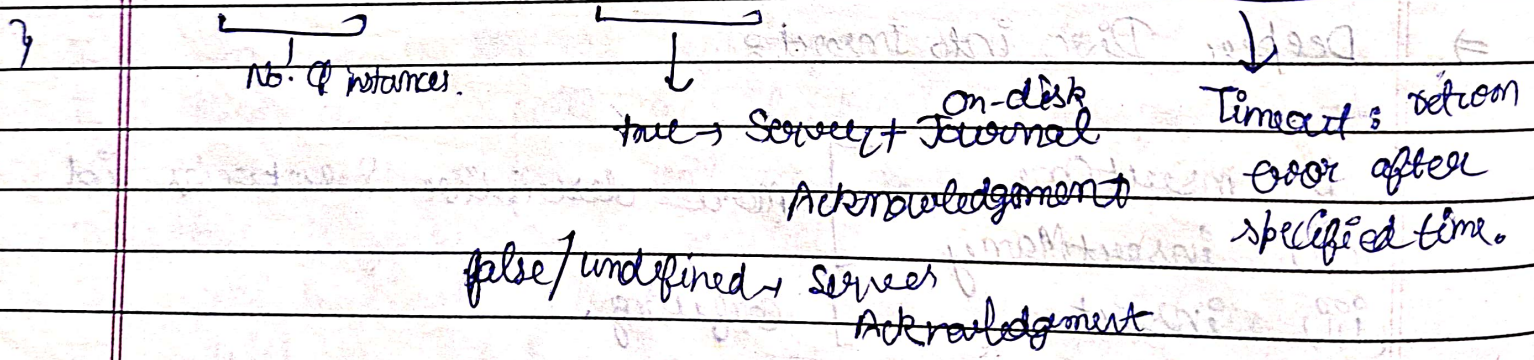 }
No. of instances.
true → Server + on-disk Journal
Acknowledgment
false/undefined → Server
Acknowledgment
Timeout : return
error after
specified time.